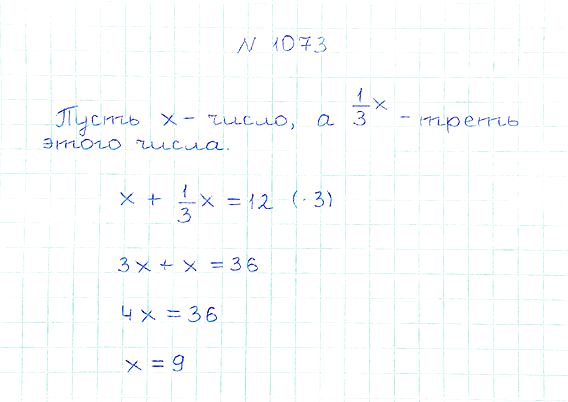 N 1073
Пусть x - число, а 1/3 x - треть
этого числа.
x + 1/3 x = 12 (· 3)
3x + x = 36
4x = 36
x = 9